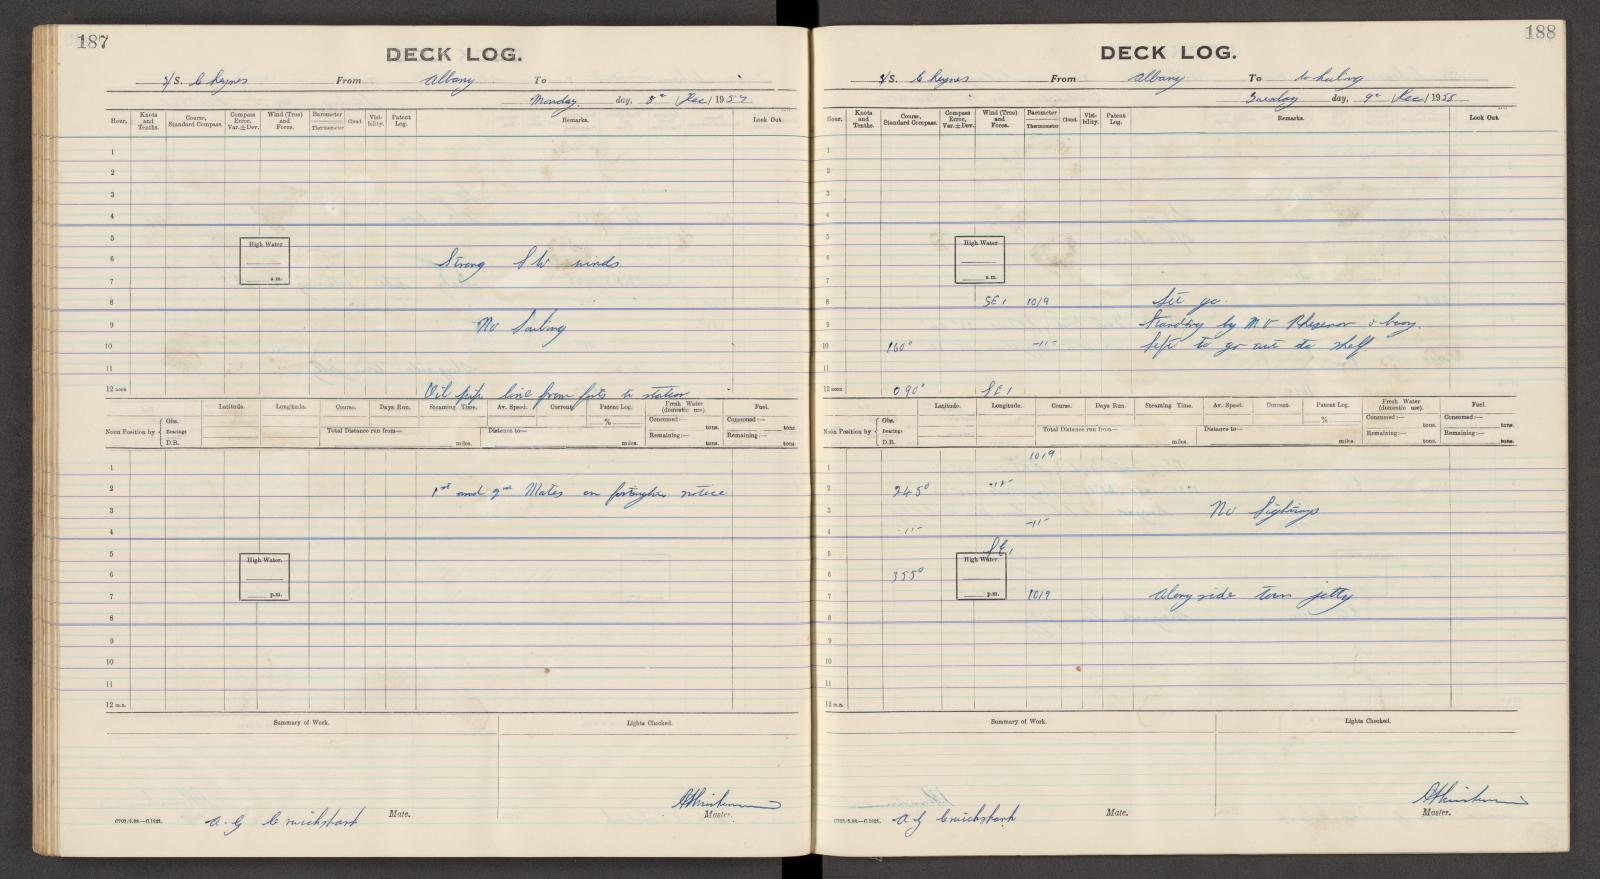 187
DECK LOG.
S/S. Cheynes From Albany To
Monday day, 8th Dec / 1957
Hour. Knots and Tenths. Course, Standard Compass. Compass Error, Var.±Dev. Wind (True) and Force. Barometer Thermometer Cloud. Visibility. Patent Log. Remarks. Look Out.
1
2
3
4
5 High Water
6 Strong SW winds
7 a.m.
8
9 No Sailing
10
11
12 noon Oil pipe line from forts to station
Latitude. Longitude. Course. Days Run. Steaming Time. Av. Speed. Current. Patent Log. Fresh Water (domestic use). Fuel.
Noon Position by Obs. Bearings D.R. Total Distance run from— miles. Distance to— miles. % Consumed:— tons. Remaining:— tons. Consumed:— tons. Remaining:— tons.
1
2 1st and 2nd Mates on fortnights notice
3
4
5 High Water.
6
7 p.m.
8
9
10
11
12 m.n.
Summary of Work. Lights Checked.
A G Cruickshank Mate. Master.
188
DECK LOG.
S/S. Cheynes From Albany To Whaling
Tuesday day, 9th Dec / 1958
Hour. Knots and Tenths. Course, Standard Compass. Compass Error, Var.±Dev. Wind (True) and Force. Barometer Thermometer Cloud. Visibility. Patent Log. Remarks. Look Out.
1
2
3
4
5 High Water
6
7 a.m.
8 SE 1 1019
9 Standing by MV
10 160° -11- left to go out to shelf
11
12 noon 090° SE 1
Latitude. Longitude. Course. Days Run. Steaming Time. Av. Speed. Current. Patent Log. Fresh Water (domestic use). Fuel.
Noon Position by Obs. Bearings D.R. Total Distance run from— miles. Distance to— miles. % Consumed:— tons. Remaining:— tons. Consumed:— tons. Remaining:— tons.
1 1019
2 245° -11-
3 No Sightings
4 -11- -11-
5 SE 1 High Water.
6 355°
7 p.m. 1019 Alongside town jetty
8
9
10
11
12 m.n.
Summary of Work. Lights Checked.
A G Cruickshank Mate. Master.